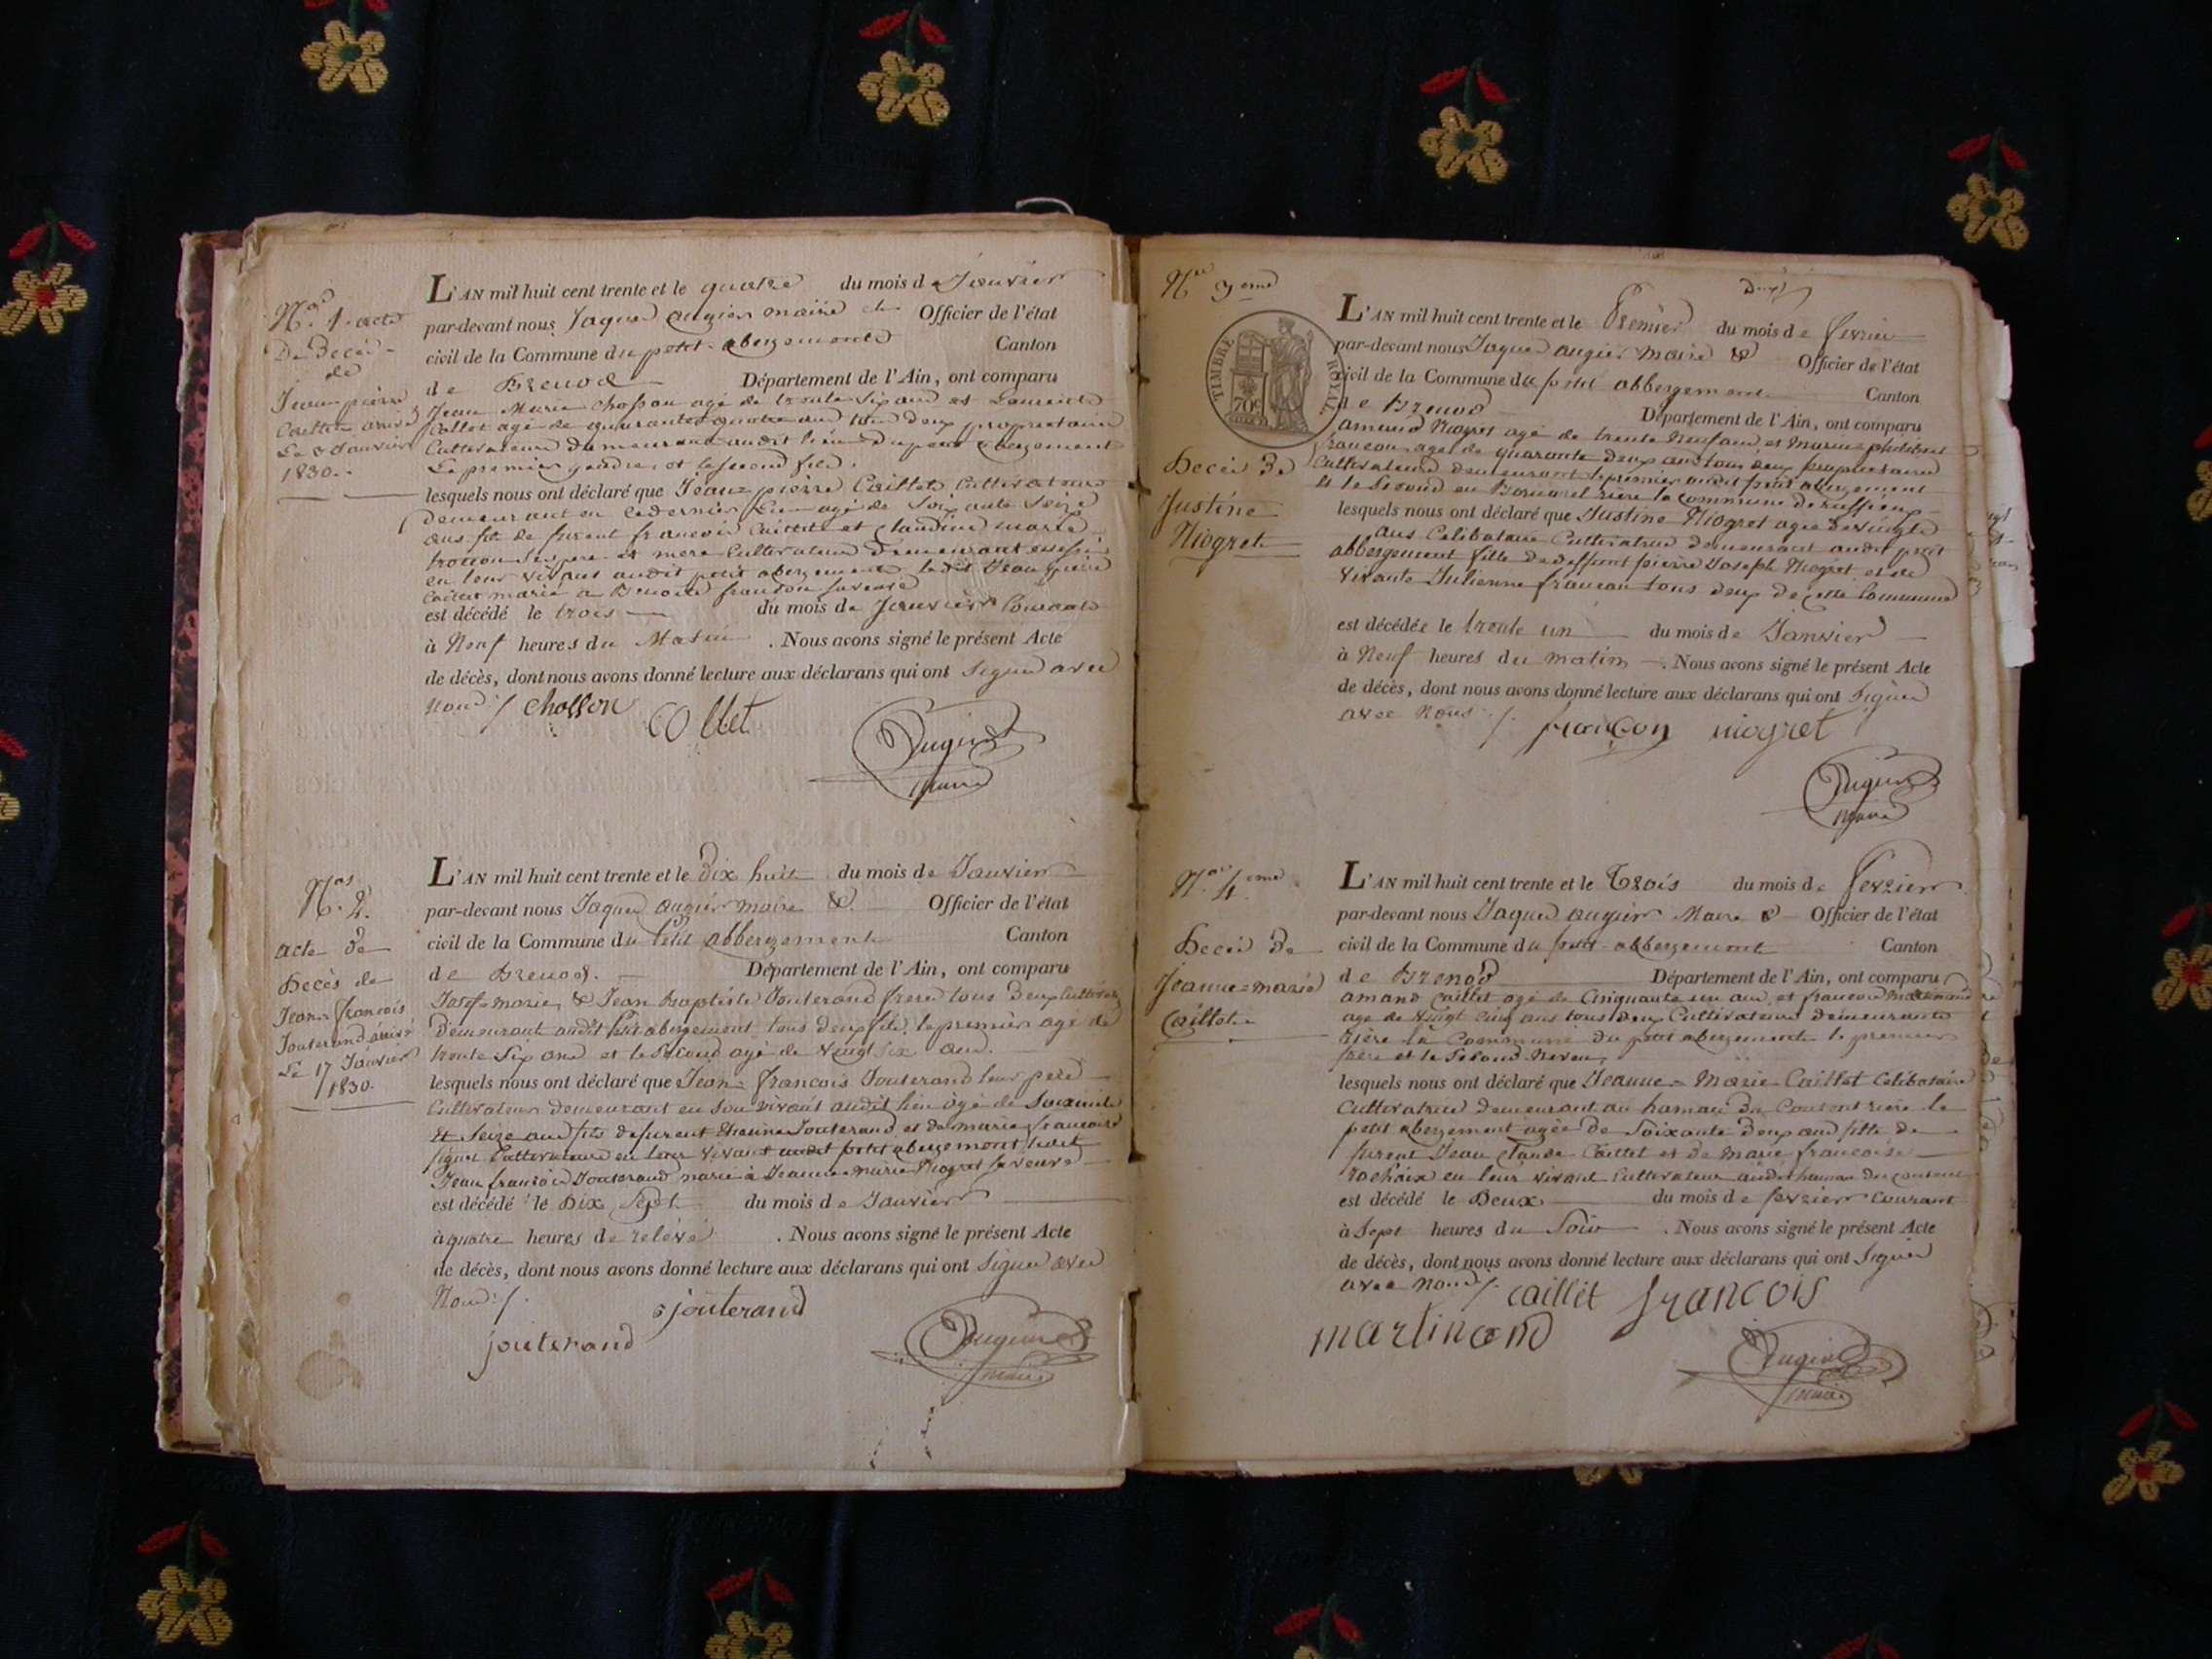 N.os 1. acte
De Decès
de
Jean pierre
Caillet arrivé
Le 3 Janvier
1830.
L'AN mil huit cent trente et le quatre du mois de Janvier
par-devant nous Jaques augier maire & Officier de l'état
civil de la Commune du petit-abergement Canton
de Brenod Département de l'Ain, ont comparu
Jean Marie chosson agé de trente six ans et Laurent
Collet agé de quarante quatre ans tous deux proprietaires
Cultivateurs demeurant audit lieu du petit abergement
Le premier gendre, et le second fils.
lesquels nous ont déclaré que Jean-pierre Caillet Cultivateur
demeurant en ce dernier Lieu agé de Soixante Seize
ans fils de furent francois Caillet et Claudine marie
ses pere et mere Cultivateurs demeurant
en leur vivant audit petit abergement ledit Jean pierre
Caillet marié a Benoite francon sa veuve
est décédé le trois du mois de Janvier Courant
à Neuf heures du Matin . Nous avons signé le présent Acte
de décès, dont nous avons donné lecture aux déclarans qui ont Signé avec
Nous ./ chosson Collet
augier
maire
N.os 2.
acte de
Decès de
Jean-francois
Jouterand arrivé
Le 17 Janvier
1830.
L'AN mil huit cent trente et le Dix huit du mois de Janvier
par-devant nous Jaques augier maire &. Officier de l'état
civil de la Commune du Petit abbergement Canton
de Brenod. Département de l'Ain, ont comparu
Josef-marie & Jean Baptiste Jouterand freres tous deux Cultivat.
demeurant audit Petit abergement tous deux fils, le premier agé de
trente Six ans et le Second agé de vingt six ans.
lesquels nous ont déclaré que Jean-francois Jouterand leur pere
Cultivateur demeurant en son vivant audit lieu agé de Soixante
Et Seize ans fils de furent Etienne Jouterand et de marie francoise
Cultivateurs en leur vivant audit petit abergement ledit
Jean francois Jouterand marié à Jeanne-marie Niogret sa veuve
est décédé le Dix Sept du mois de Janvier
à quatre heures de relévé . Nous avons signé le présent Acte
de décès, dont nous avons donné lecture aux déclarans qui ont Signé avec
Nous ./. jouterand
jouterand
augier
maire
N.os 3eme
TIMBRE ROYAL
70c
Decès de
Justine
Niogret
L'AN mil huit cent trente et le Premier du mois de fevrier
par-devant nous Jaques augier maire & Officier de l'état
civil de la Commune du petit abbergement Canton
de Brenod Département de l'Ain, ont comparu
amand Niogret agé de trente Neuf ans et Marie-philibert
francon agé de quarante deux ans tous deux proprietaires
Cultivateurs demeurant le premier audit petit abergement
Et le Second en rière la commune de ruffieux
lesquels nous ont déclaré que Justine Niogret agée de vingt
ans Celibataire Cultivatrice demeurant audit petit
abbergement fille de deffunt pierre Joseph Niogret et de
vivante Julienne francon tous deux de cette Commune
est décédée le trente un du mois de Janvier
à Neuf heures du matin . Nous avons signé le présent Acte
de décès, dont nous avons donné lecture aux déclarans qui ont Signé
avec Nous ./. françon niogret
augier
maire
N.os 4eme
Decès de
Jeanne-marie
Caillet
L'AN mil huit cent trente et le Trois du mois de fevrier
par-devant nous Jaques augier Maire & Officier de l'état
civil de la Commune du petit-abbergement Canton
de Brenod Département de l'Ain, ont comparu
amand Caillet agé de Cinquante un ans, et francois Martinand
agé de vingt cinq ans tous deux Cultivateurs demeurants
rière la Commune du petit abergement le premier
frère et le Second Neveu
lesquels nous ont déclaré que Jeanne-Marie Caillet Celibataire
Cultivatrice demeurant au hameau du rière le
petit abergement agée de Soixante deux ans fille de
furent Jean Claude Caillet et de Marie francoise
rochaix en leur vivant Cultivateurs audit hameau du
est décédé le Deux du mois de fevrier Courant
à Sept heures du Soir . Nous avons signé le présent Acte
de décès, dont nous avons donné lecture aux déclarans qui ont Signé
avec Nous ./. caillet francois
martinand
augier
maire